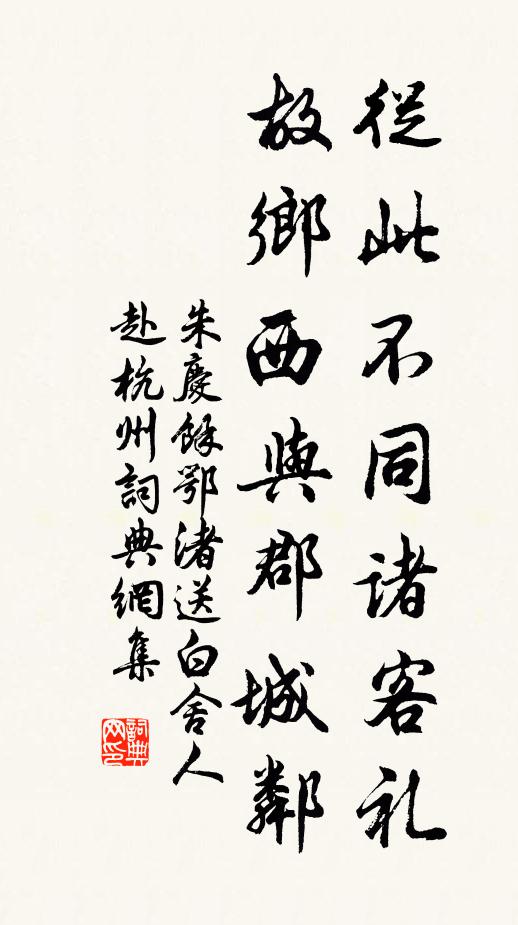 從此不同諸客礼
故鄉西與郡城鄰
朱慶餘鄂渚送白舍人
赴杭州詞典網集
詞典
网印